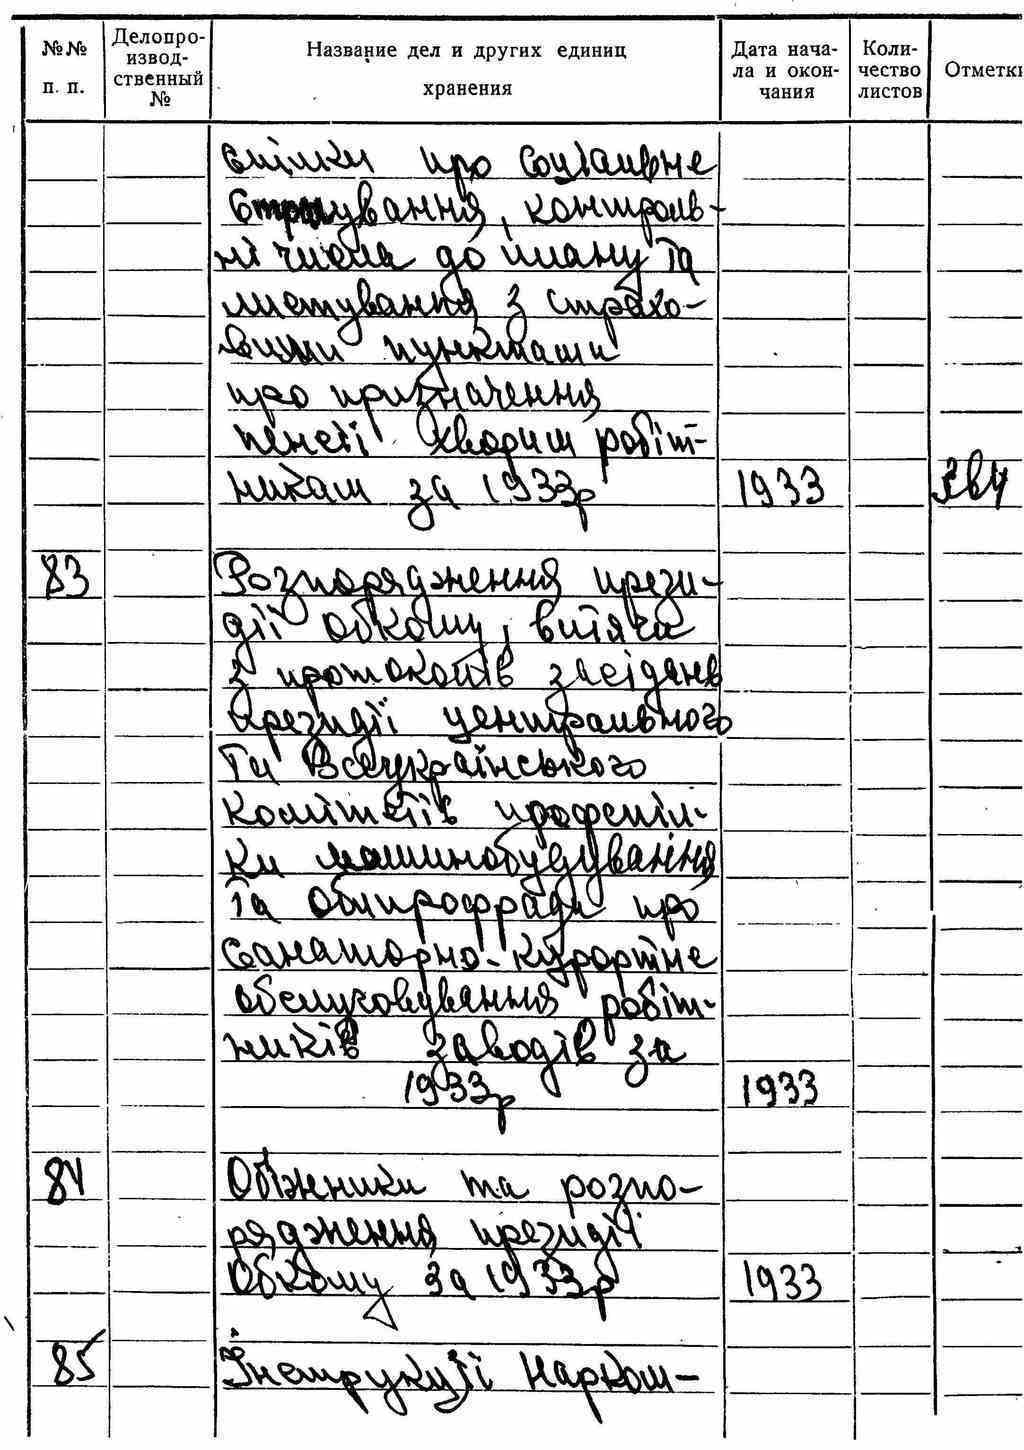 №№ п. п.
Делопро-
извод-
ственный
№
Название дел и других единиц
хранения
Дата нача-
ла и окон-
чания
Коли-
чество
листов
Отметки
спілки про соціальне
страхування, контроль-
ні числа до плану та
листування з страхо-
вими пунктами
про призначення
пенсії хворим робіт-
никам за 1933р 1933
83 Розпорядження прези-
дії обкому, витяги
з протоколів засідань
президії центрального
та Всеукраїнського
комітетів профспіл-
ки машинобудування
та облпрофради про
санаторно-курортне
обслуговування робіт-
ників заводів за
1933р 1933
84 Обіжники та розпо-
рядження президії
Обкому за 1933р 1933
85 Інструкції Нарком-